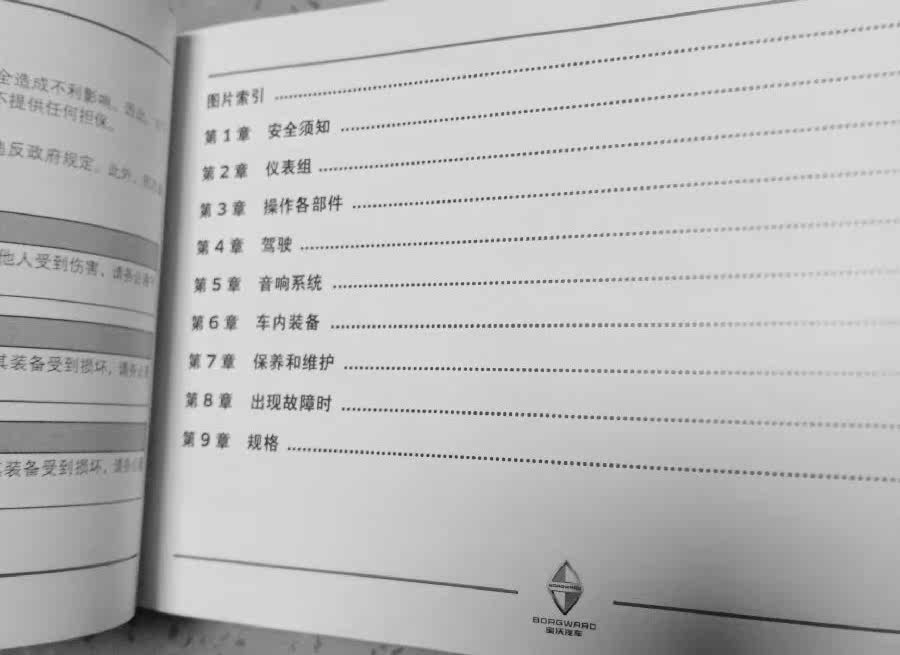 全造成不利影响。因此,
不提供任何担保。
违反政府规定。此外,
他人受到伤害,请务必
其装备受到损坏,请务必
其装备受到损坏,请务必
图片索引
第 1 章 安全须知
第 2 章 仪表组
第 3 章 操作各部件
第 4 章 驾驶
第 5 章 音响系统
第 6 章 车内装备
第 7 章 保养和维护
第 8 章 出现故障时
第 9 章 规格
BORGWARD
BORGWARD
宝沃汽车